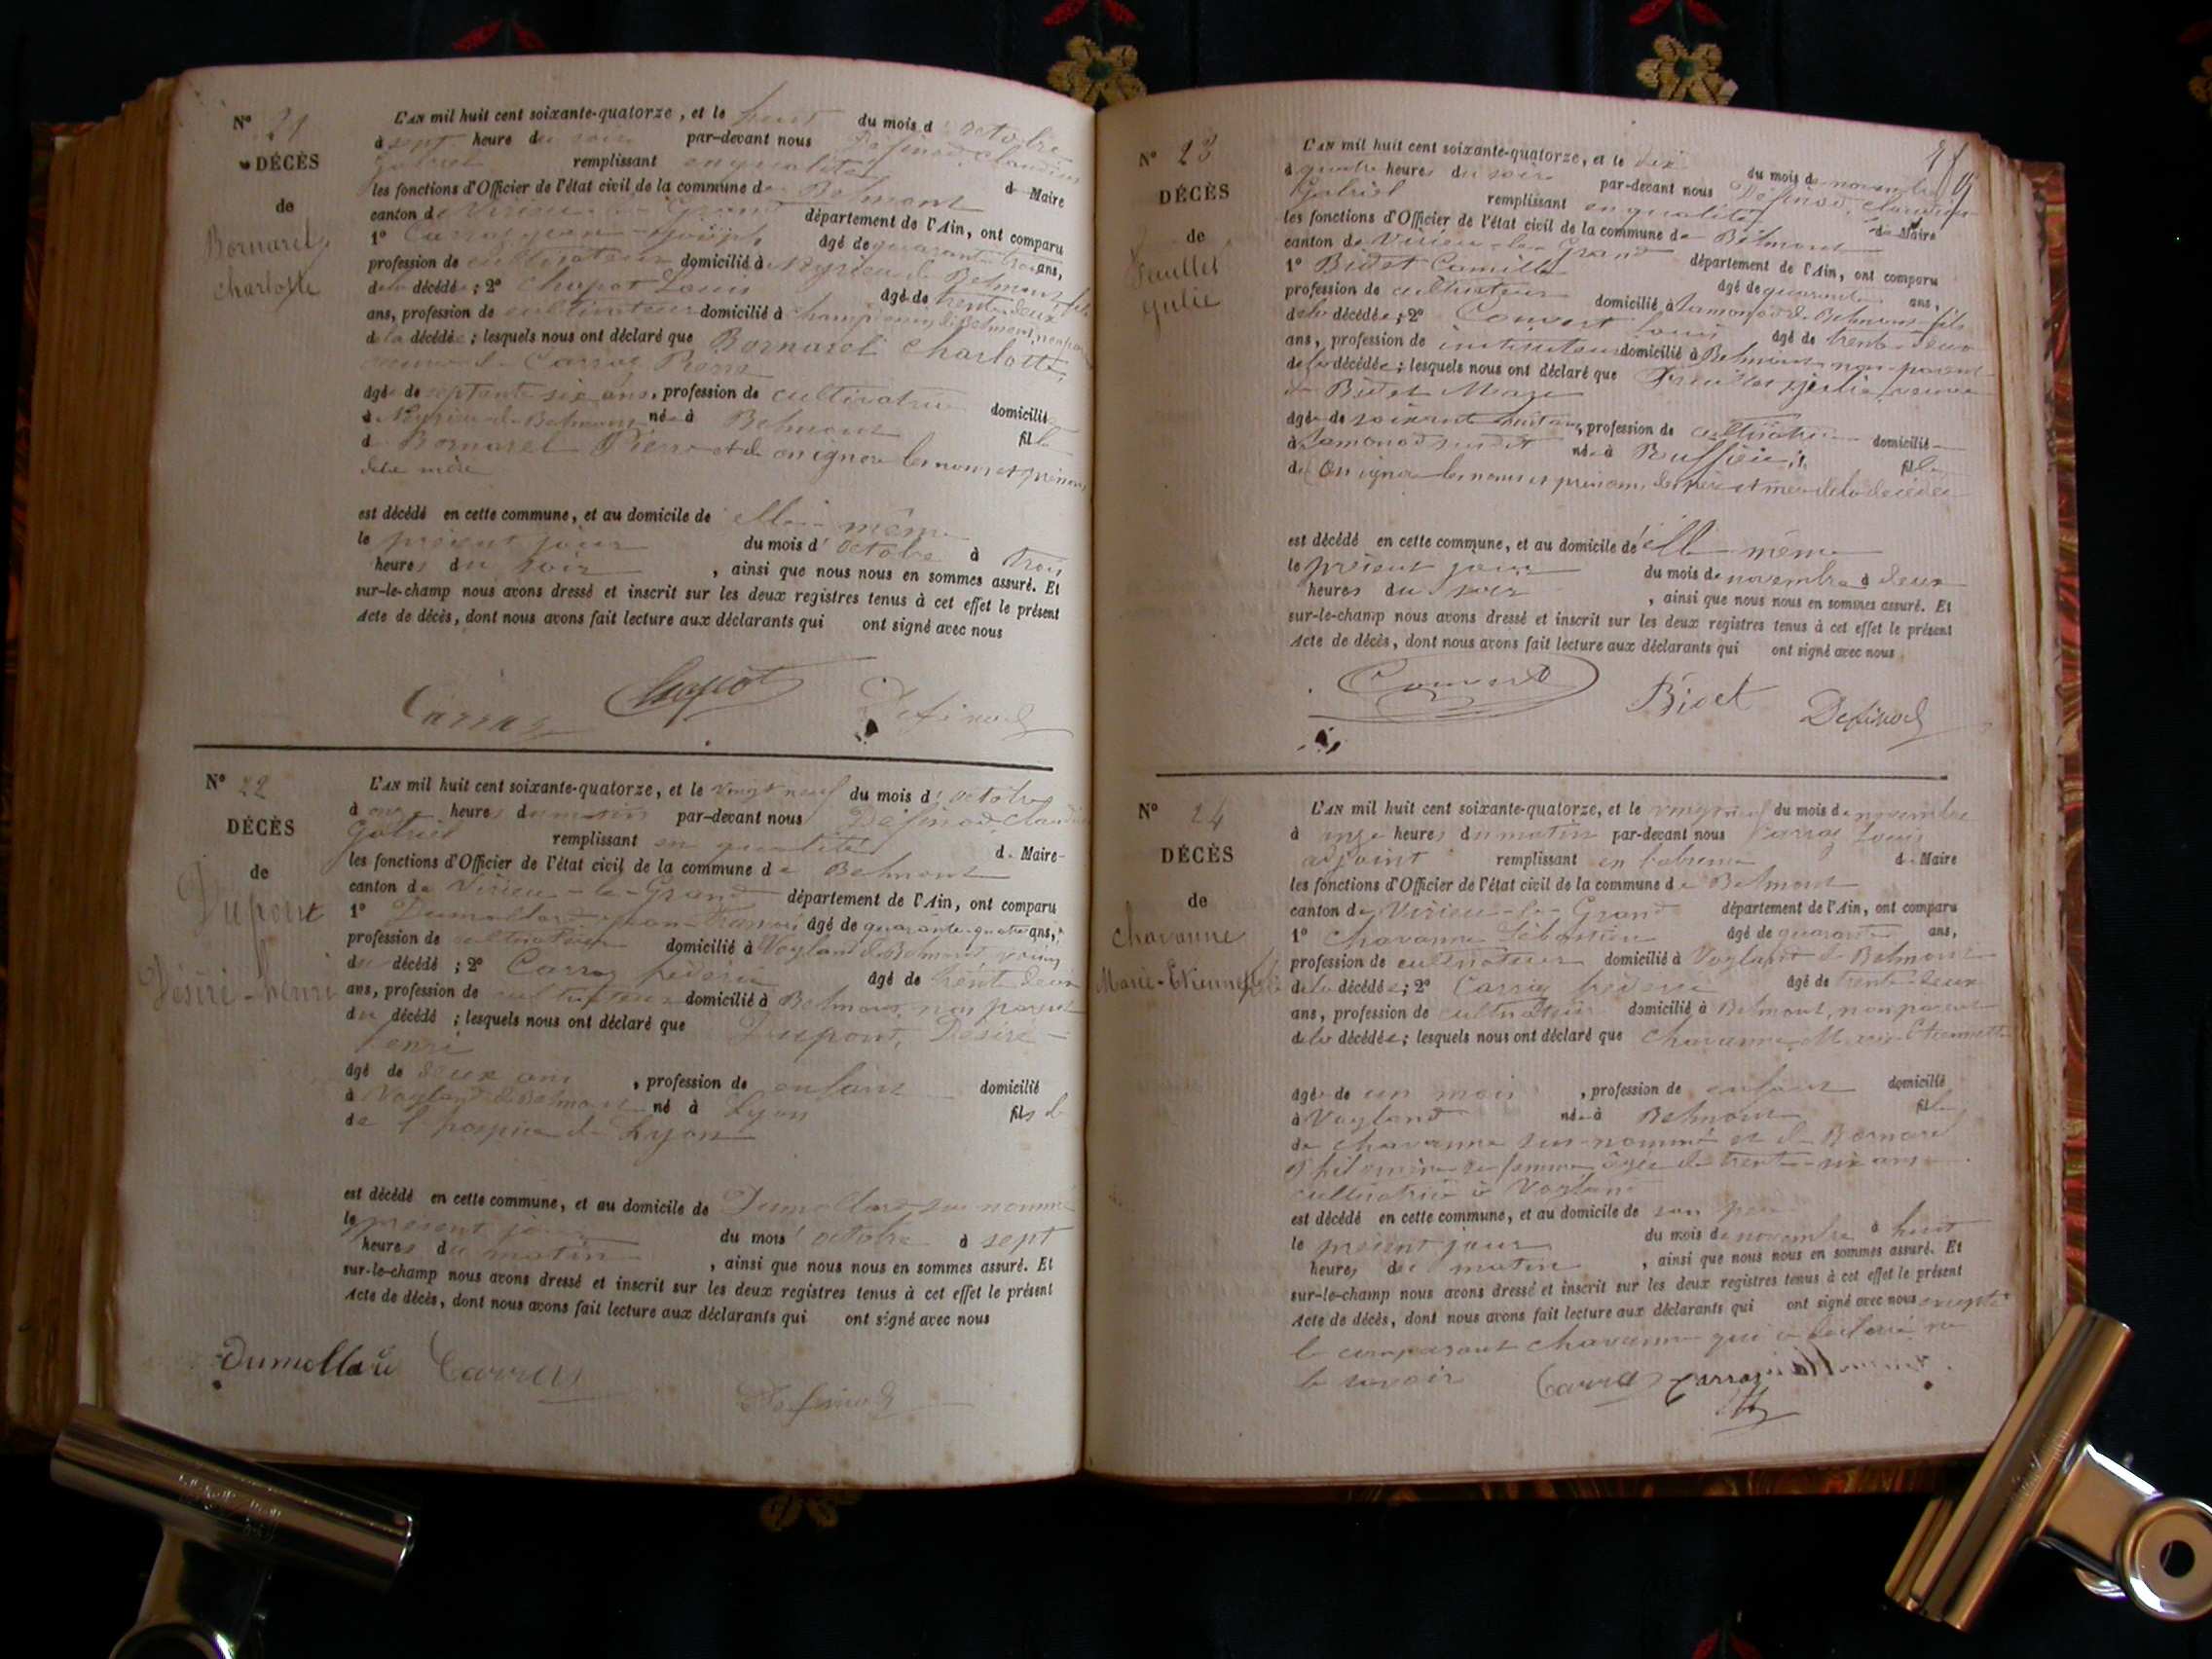 N° 21
DÉCÈS
de
Bornarel
Charlotte
L'AN mil huit cent soixante-quatorze, et le huit du mois d'octobre
à sept heure du soir par-devant nous Définod, Claudius
Gabriel remplissant en qualité d Maire
les fonctions d'Officier de l'état civil de la commune de Belmont
canton de Virieu-le-Grand département de l'Ain, ont comparu
1° Carraz Jean-Joseph âgé de quarante trois ans,
profession de cultivateur domicilié à Neyrieu de Belmont fils
de la décédée; 2° Chapot Louis âgé de trente deux
ans, profession de cultivateur domicilié à de Belmont, non parent
de la décédée; lesquels nous ont déclaré que Bornarel Charlotte,
veuve de Carraz Pierre
âgée de septante six ans, profession de cultivatrice domiciliée
à Neyrieu de Belmont née à Belmont fille
de Bornarel Pierre et de on ignore les noms et prénoms
de la mère
est décédé en cette commune, et au domicile de elle-même
le présent jour du mois d'octobre à trois
heures du soir, ainsi que nous nous en sommes assuré. Et
sur-le-champ nous avons dressé et inscrit sur les deux registres tenus à cet effet le présent
Acte de décès, dont nous avons fait lecture aux déclarants qui ont signé avec nous
Carraz Chapot Definod
N° 22
DÉCÈS
de
Dupont
Désiré-henri
L'AN mil huit cent soixante-quatorze, et le vingt neuf du mois d'octobre
à onze heures du matin par-devant nous Définod, Claudius
Gabriel remplissant en qualité d. Maire
les fonctions d'Officier de l'état civil de la commune de Belmont
canton de Virieu-le-Grand département de l'Ain, ont comparu
1° Dumollard Jean-François âgé de quarante-quatre ans,
profession de cultivateur domicilié à Vogland de Belmont, voisin
du décédé; 2° Carraz fréderic âgé de trente deux
ans, profession de cultivateur domicilié à Belmont, non parent
du décédé; lesquels nous ont déclaré que Dupont, Désiré-
henri
âgé de deux ans, profession de enfant domicilié
à Vogland de Belmont né à Lyon fils de
de l'hospice de Lyon
est décédé en cette commune, et au domicile de Dumollard sus nommé
le présent jour du mois d'octobre à sept
heures du matin, ainsi que nous nous en sommes assuré. Et
sur-le-champ nous avons dressé et inscrit sur les deux registres tenus à cet effet le présent
Acte de décès, dont nous avons fait lecture aux déclarants qui ont signé avec nous
Dumollard Carraz
Definod
N° 23
DÉCÈS
de
Feuillet
Julie
L'AN mil huit cent soixante-quatorze, et le dix du mois de novembre
à quatre heures du soir par-devant nous Définod, Claudius
Gabriel remplissant en qualité de Maire
les fonctions d'Officier de l'état civil de la commune de Belmont
canton de Virieu-le-Grand département de l'Ain, ont comparu
1° Bidet Camille âgé de quarante ans,
profession de cultivateur domicilié à Samonod de Belmont fils
de la décédée; 2° Convert Louis âgé de trente deux
ans, profession de instituteur domicilié à Belmont non parent
de la décédée; lesquels nous ont déclaré que Feuillet Julie, veuve
de Bidet
âgée de soixante huit ans, profession de cultivatrice domiciliée
à Samonod susdit née à Ruffieu fille
de On ignore les noms et prénoms des père et mère de la décédée
est décédé en cette commune, et au domicile de elle même
le présent jour du mois de novembre à deux
heures du soir, ainsi que nous nous en sommes assuré. Et
sur-le-champ nous avons dressé et inscrit sur les deux registres tenus à cet effet le présent
Acte de décès, dont nous avons fait lecture aux déclarants qui ont signé avec nous
Convert Bidet Definod
N° 24
DÉCÈS
de
Chavanne
Marie-Etiennette
L'AN mil huit cent soixante-quatorze, et le vingt neuf du mois de novembre
à onze heures du matin par-devant nous Carraz Louis
adjoint remplissant en l'absence d. Maire
les fonctions d'Officier de l'état civil de la commune de Belmont
canton de Virieu-le-Grand département de l'Ain, ont comparu
1° Chavanne Sébastien âgé de quarante ans,
profession de cultivateur domicilié à Vogland de Belmont
de la décédée; 2° Carraz fréderic âgé de trente deux
ans, profession de cultivateur domicilié à Belmont, non parent
de la décédée; lesquels nous ont déclaré que Chavanne Marie Etiennette
âgée de un mois, profession de enfant domicilié
à Vogland née à Belmont fille
de Chavanne sus-nommé et de Bornarel
Philomène sa femme âgée de trente-six ans
cultivatrice à Vogland
est décédé en cette commune, et au domicile de son père
le présent jour du mois de novembre à huit
heures du matin, ainsi que nous nous en sommes assuré. Et
sur-le-champ nous avons dressé et inscrit sur les deux registres tenus à cet effet le présent
Acte de décès, dont nous avons fait lecture aux déclarants qui ont signé avec nous excepté
le comparant Chavanne qui a déclaré ne
le savoir Carraz Carraz